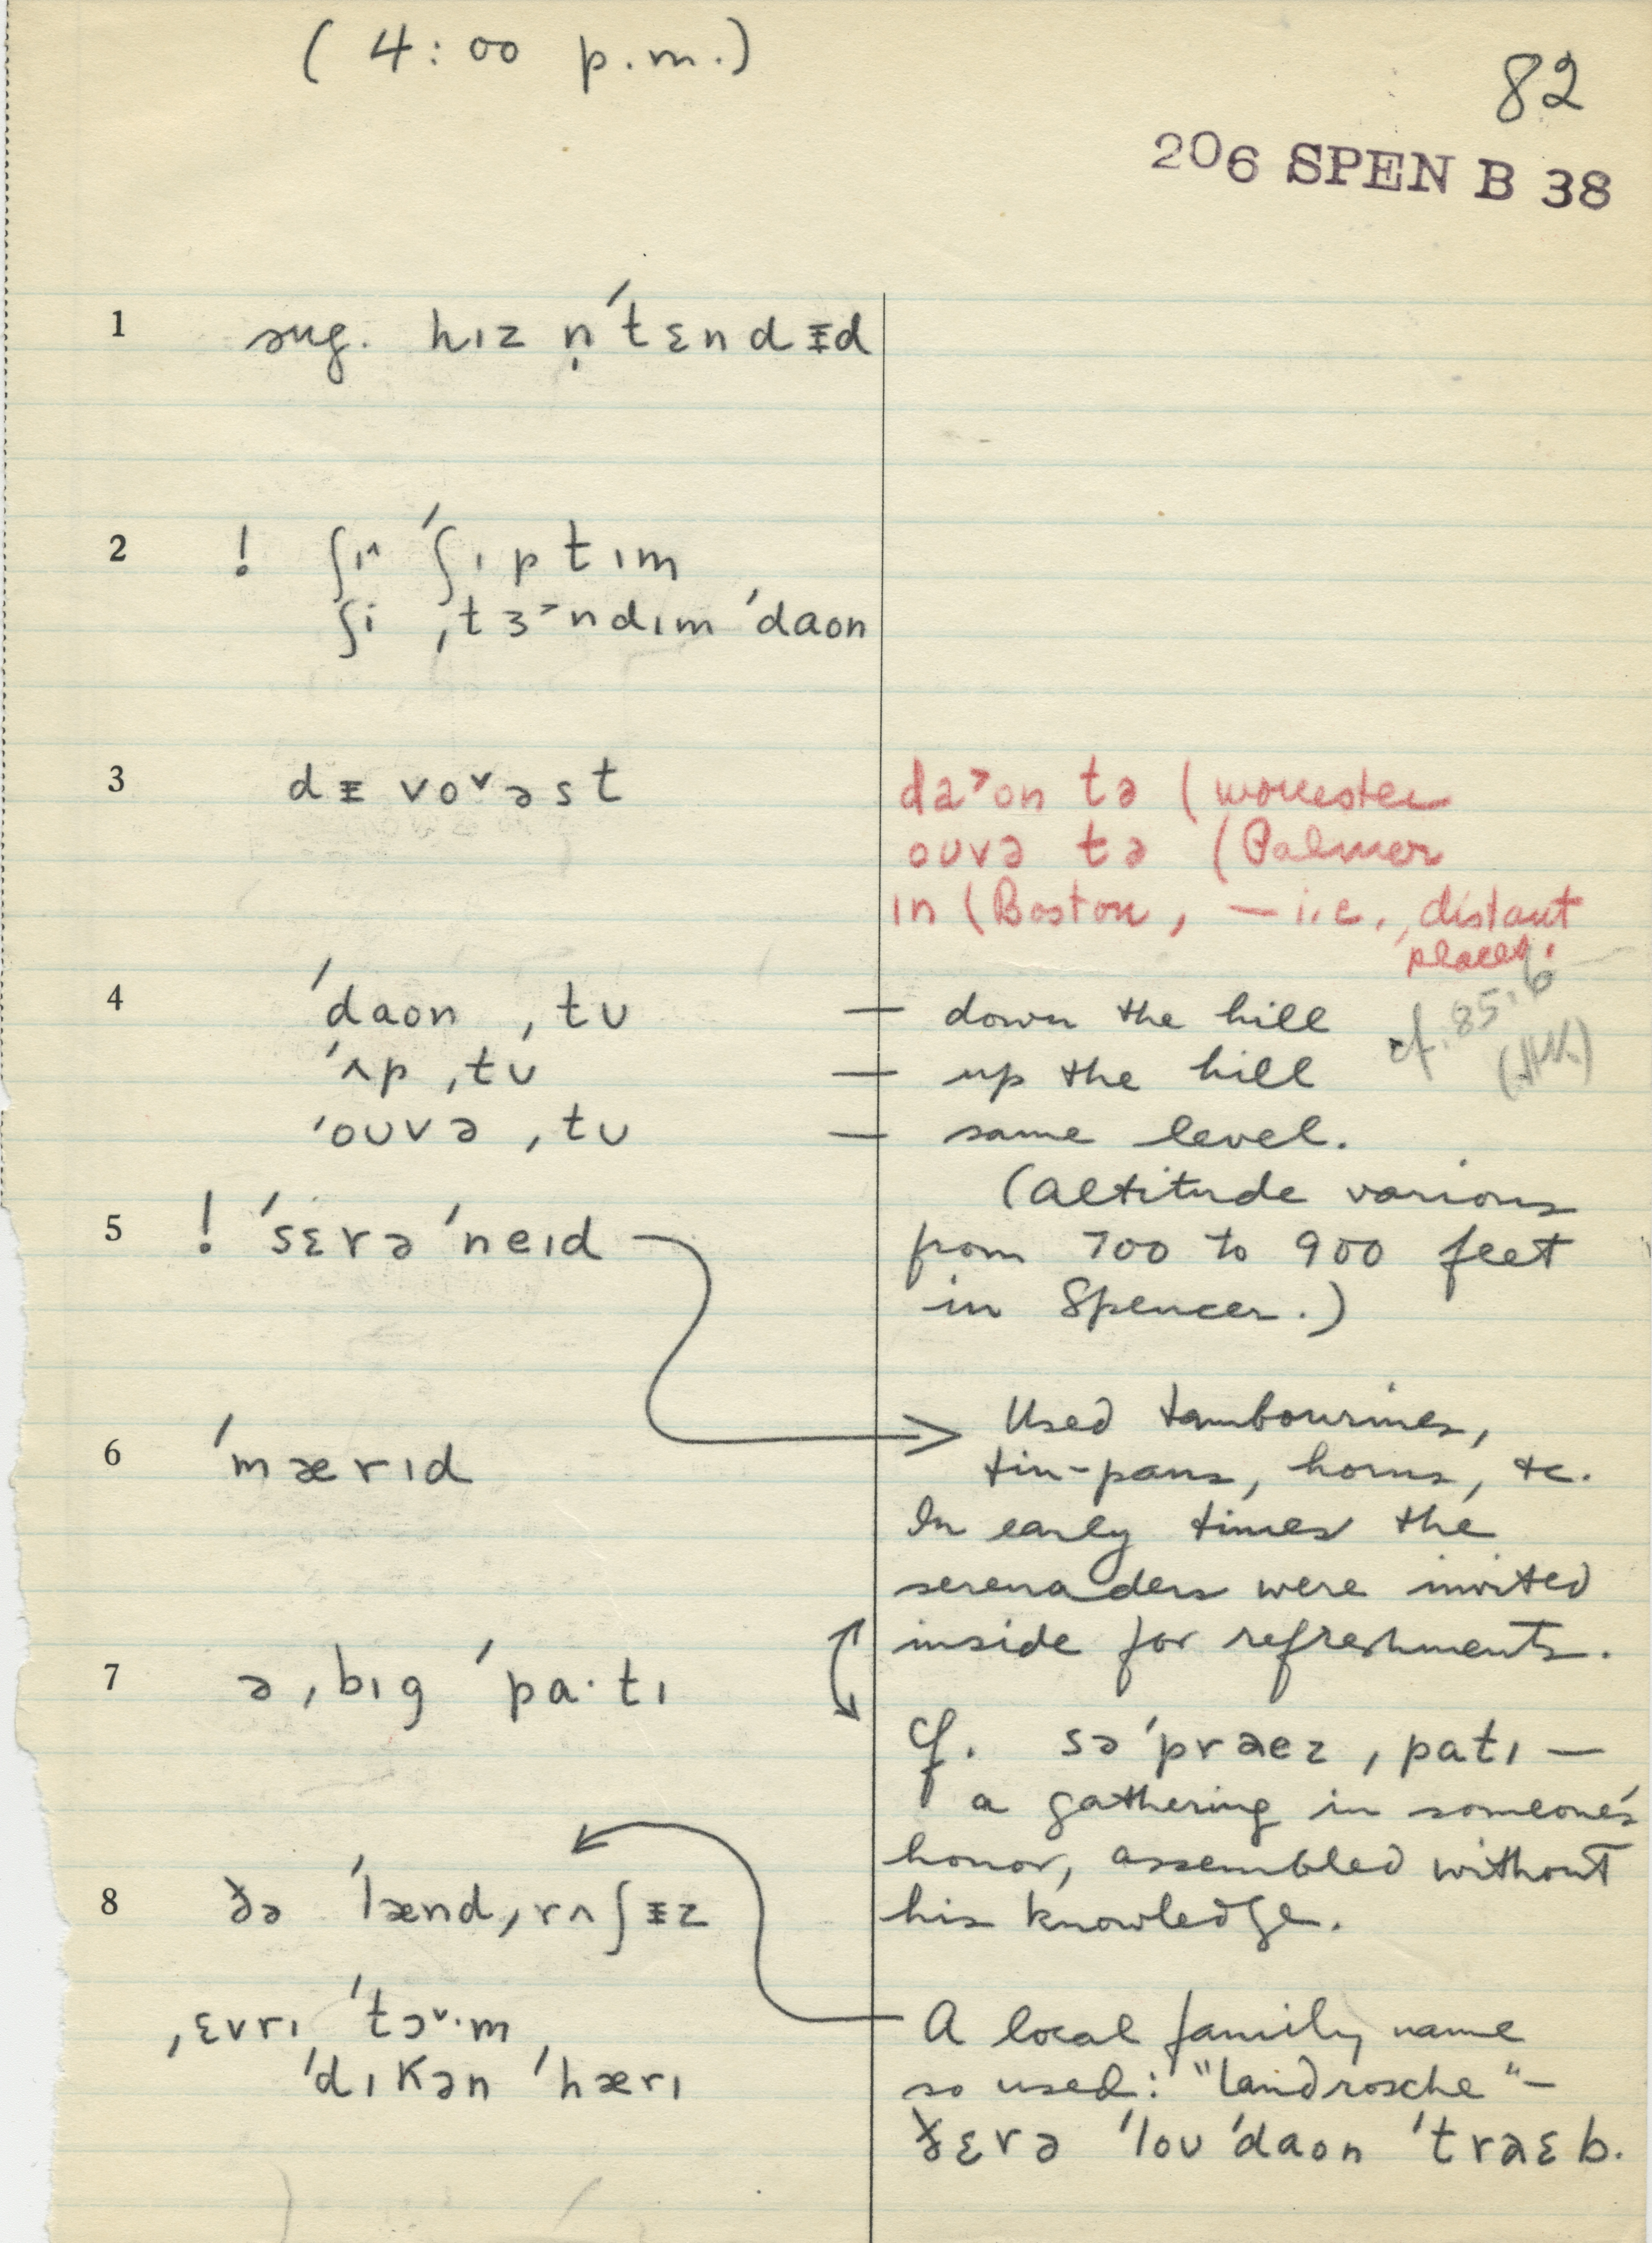 ( 4:00 p.m.)
82
206 SPEN B 38
1 sug. hɪz n̩ˈtɛndɪ̵d
2 ! ʃɪ^ ˈʃɪptɪm
ʃi ˌtɜ˃ndɪm ˈdaon
3 dɪ̵voᵛəst
da˃on tə (Worcester
ouvə tə (Palmer
ɪn (Boston, — i.e., distant
places.
4 ˈdaon ˌtʊ — down the hill
cf. 85.6
ˈʌp ˌtʊ — up the hill
ˈoʊvə ˌtʊ — same level.
(altitude various
5 ! ˈsɛrəˈneɪd
from 700 to 900 feet
in Spencer.)
Used tambourines,
6 ˈmærɪd
tin-pans, horns, &c.
In early times the
serenaders were invited
inside for refreshments.
7 ə ˌbɪg ˈpa·tɪ
Cf. səˈprɑez ˌpatɪ —
a gathering in someone's
honor, assembled without
8 ðə ˈlændˌrʌʃɪ̵z
his knowledge.
ˌɛvrɪ ˈtɔᵛ·m
A local family name
ˈdɪkən ˈhærɪ
so used: "Landrosche" —
ðɛrə ˈloʊ ˈdaon ˈtrɑɛb.